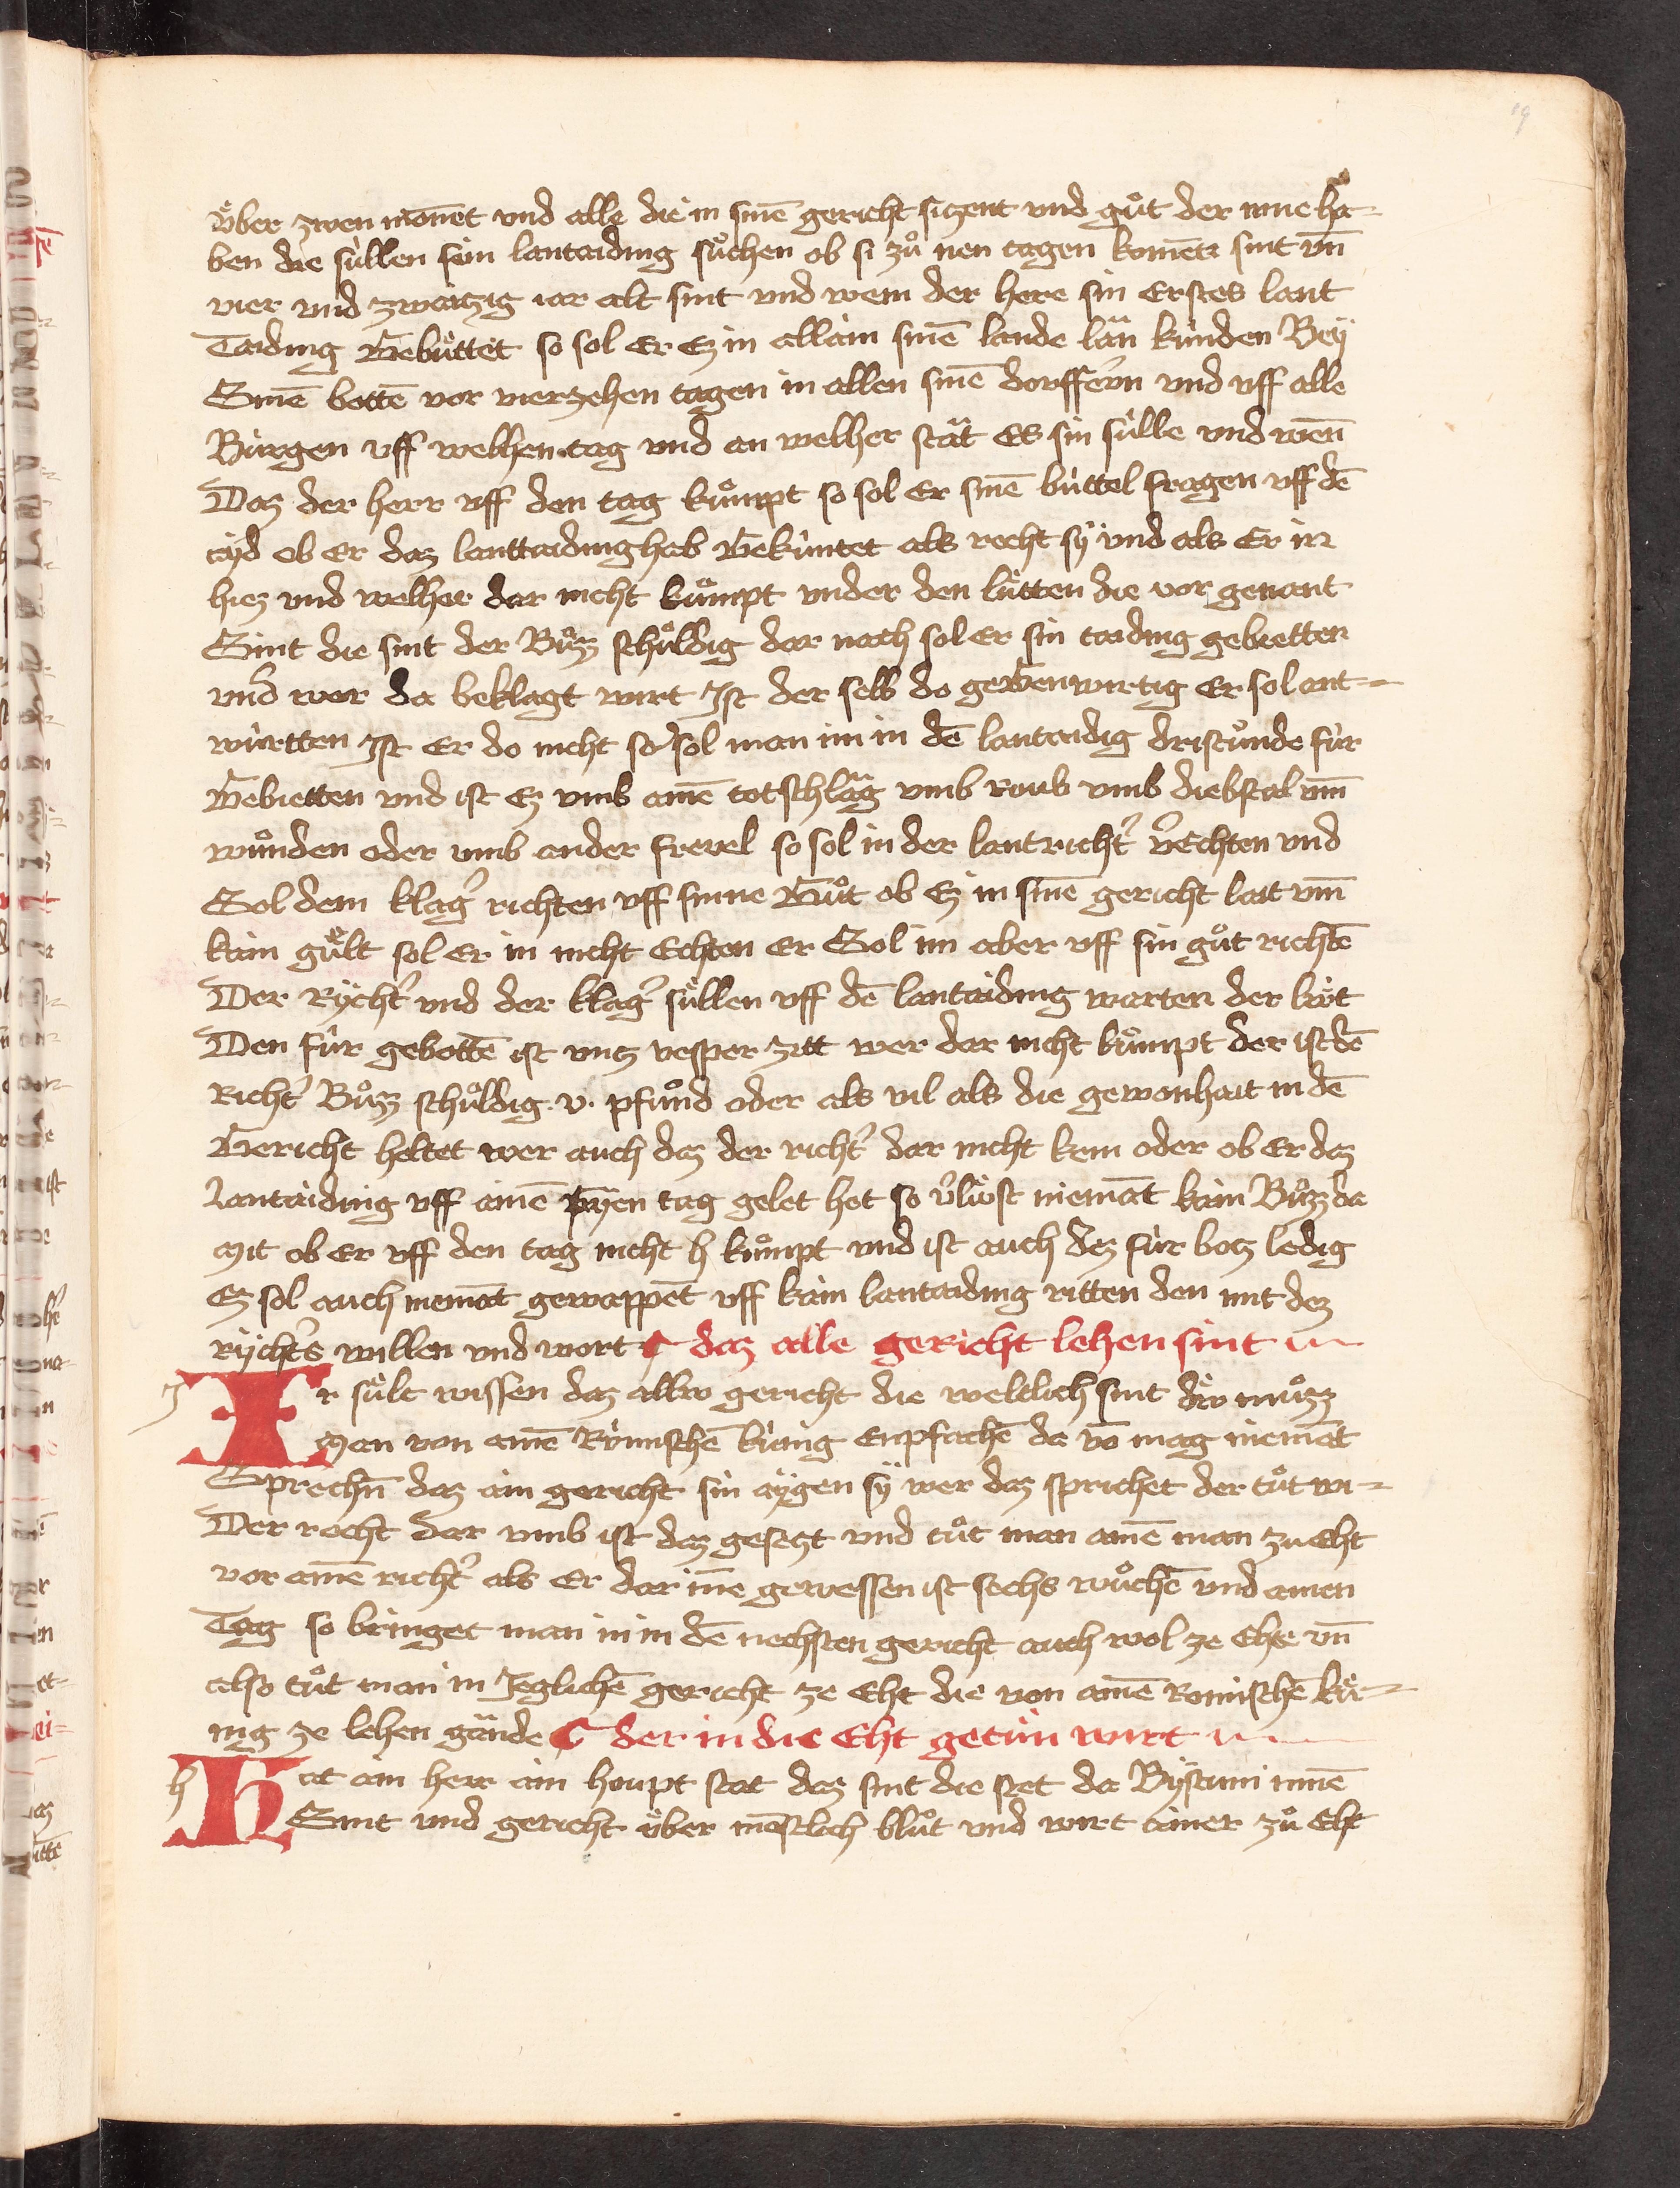 19
v̈ber zwen monet vnd alle die in sinē gericht siczent vnd gůt der jnne ha-
ben die sùllen sein lantaiding sůchen ob si zů nen tagen komen sint vn̄
vier vnd zwaitzig iar alt sint vnd wem der here sin Erstes lant
Taiding Gebüttet so sol Er Ez in allain sinē lande län künden Bey
Sinē bottē vor vierzehen tagen in allen sinē dorffern vnd vff alle
Bùrgen vff welhen tag vnd an welher stät Es sin sùlle vnd wen̄
Daz der herr vff den tag kůmpt so sol Er sinē bùttel fragen vff dē
ayd ob Er daz lanttaiding hab Gekùntet als recht sÿ vnd als Er in
hiez vnd welher dar nicht kůmpt vnder den lùtten die vor genant
Sint die sint der Bůzz schůldig dar nach sol Er sin taiding gebietten
vnd wer da beklagt wirt Ist der selb do gegenwirtig Er sol ant-
wùrtten Ist Er do nicht so sol man im in dē lantaidig dristůnde fùr
Gebietten vnd ist Ez vmb ainē totschläg vmb roub vmb diebstal vm̄
wůnden oder vmb ander frevel so sol in der lantricht' v'Echten vnd
Sol dem klag' richten vff sinne Gůt ob Ez in sinē gericht lait vm̄
kain gùlt sol Er in nicht Echten Er Sol im aber vff sin gůt richtē
Der Rÿcht' vnd der klag' sùllen vff dē lantaiding warten der lüt
Den fùr gebottē ist vntz vesper zitt wer dar nicht kůmpt der ist dē
Richt' Bůzz schůldig .v. pfůnd oder als vil als die gewonhait in dē
Gericht heltet wer auch daz der richt' dar nicht kem oder ob Er daz
Lantaiding vff ainē tag gelet het so v'lùst niemāt kain Bůzz da
Mit ob Er vff den tag nicht h kůmpt vnd ist auch dez fùr botz ledig
Ez sol auch niemāt gewappēt vff kain lantaiding ritten den mit dez
Rÿcht's willen vnd wort ¶ daz alle gericht lehen sint
J
Ir sùlt wissen daz allw gericht die weltlich sint dw mùzz
Man von ainē Römschē kùnig Enpfachē da vō mag niemāt
Sprechn̄ daz ain gericht sin aÿgen sÿ wer daz sprichet der tůt wi-
Der recht dar vmb ist daz gesezt vnd tůt man ainē man zu Eht
vor ainē richt' als Er dar in̄e gewessen ist sechs wůchē vnd ainen
Tag so bringet man in in dē nechsten gericht auch wol ze Ehte vn̄
also tůt man in Jeglichē gericht ze Eht die von ainē Romischē kù-
nig ze lehen gände ¶ der in die Eht getün wirt
h
Hat ain herr ain houpt stat daz sint die stet da Bÿstum innē
Sint vnd gericht v̈ber mēstlich blůt vnd wirt ainer zů Eht